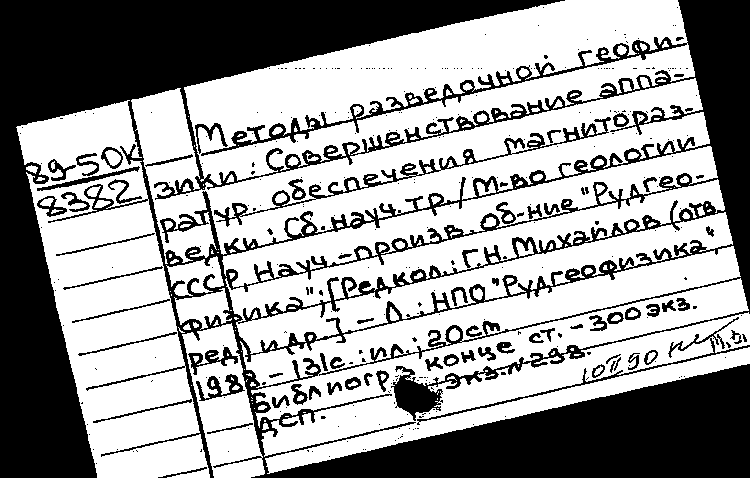 Методы разведочной геофи-
89-5DK
8382
зики: Совершенствование аппа-
ратур. обеспечения магнитораз-
ведки: Сб. науч. тр. / М-во геологии
СССР, Науч.-произв. об-ние "Рудгео-
физика"; [Редкол.: Г.Н. Михайлов (отв.
ред.) и др.]. - Л.: НПО "Рудгеофизика",
1988. - 131с.: ил.; 20 см.
Библиогр. в конце ст. - 300 экз.
ДСП. экз. № 298.
10 II 90